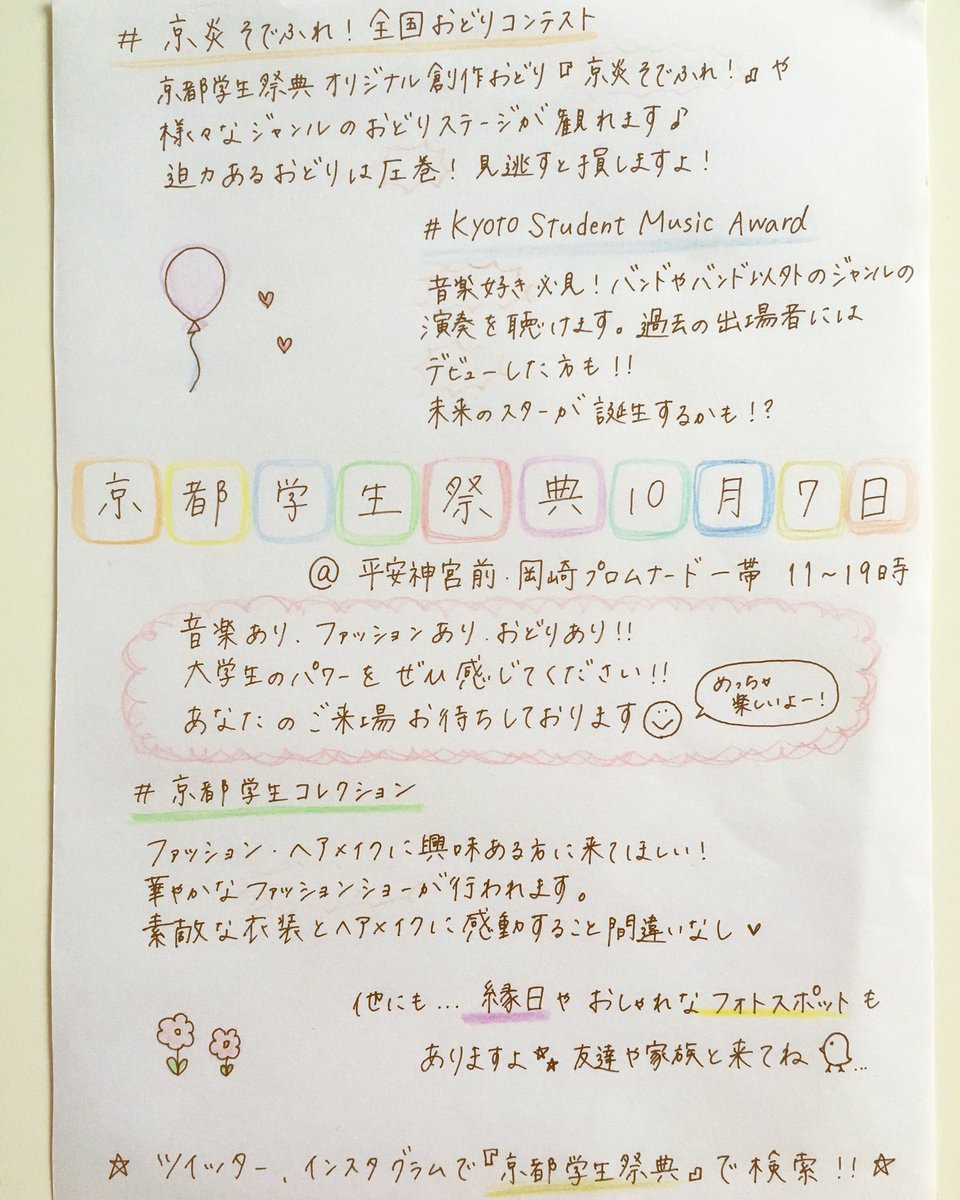 # 京炎 そでふれ! 全国おどりコンテスト
京都学生祭典 オリジナル創作おどり『京炎そでふれ!』や
様々なジャンルのおどりステージが観れます♪
迫力あるおどりは圧巻! 見逃すと損しますよ!
# Kyoto Student Music Award
音楽好き必見! バンドやバンド以外のジャンルの
演奏を聴けます。過去の出場者には
デビューした方も!!
未来のスターが誕生するかも!?
京都学生祭典10月7日
@ 平安神宮前・岡崎プロムナード一帯 11~19時
音楽あり、ファッションあり、おどりあり!!
大学生のパワーをぜひ感じてください!!
あなたのご来場お待ちしております
めっちゃ
楽しいよー!
# 京都学生コレクション
ファッション・ヘアメイクに興味ある方に来てほしい!
華やかなファッションショーが行われます。
素敵な衣装とヘアメイクに感動すること間違いなし♥
他にも… 縁日や おしゃれな フォトスポットも
ありますよ☆☆ 友達や家族と来てね …
☆ ツイッター、インスタグラムで『京都学生祭典』で検索!! ☆